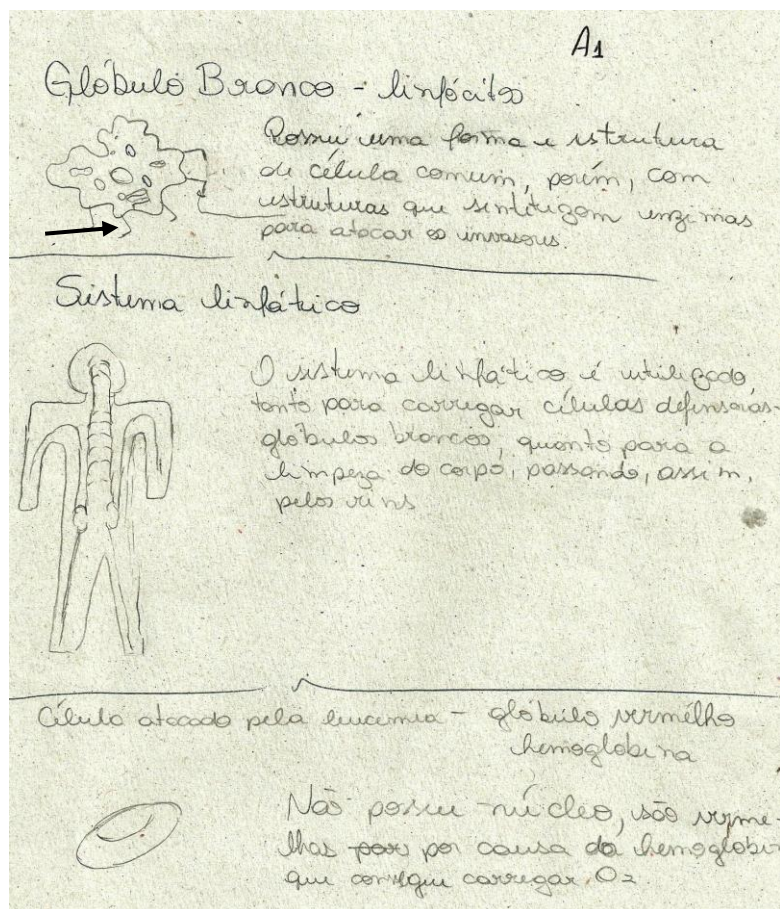 A1
Glóbulo Branco - linfócitos
Possui uma forma e estrutura
de célula comum, porém, com
estruturas que sintetizam enzimas
para atacar os invasores.
Sistema linfático
O sistema linfático é utilizado,
tanto para carregar células defensoras-
glóbulos brancos, quanto para a
limpeza do corpo, passando, assim,
pelos rins
Célula atacada pela leucemia - glóbulo vermelho
hemoglobina
Não possui núcleo, são verme-
lhas por causa da hemoglobi
que consegue carregar O2